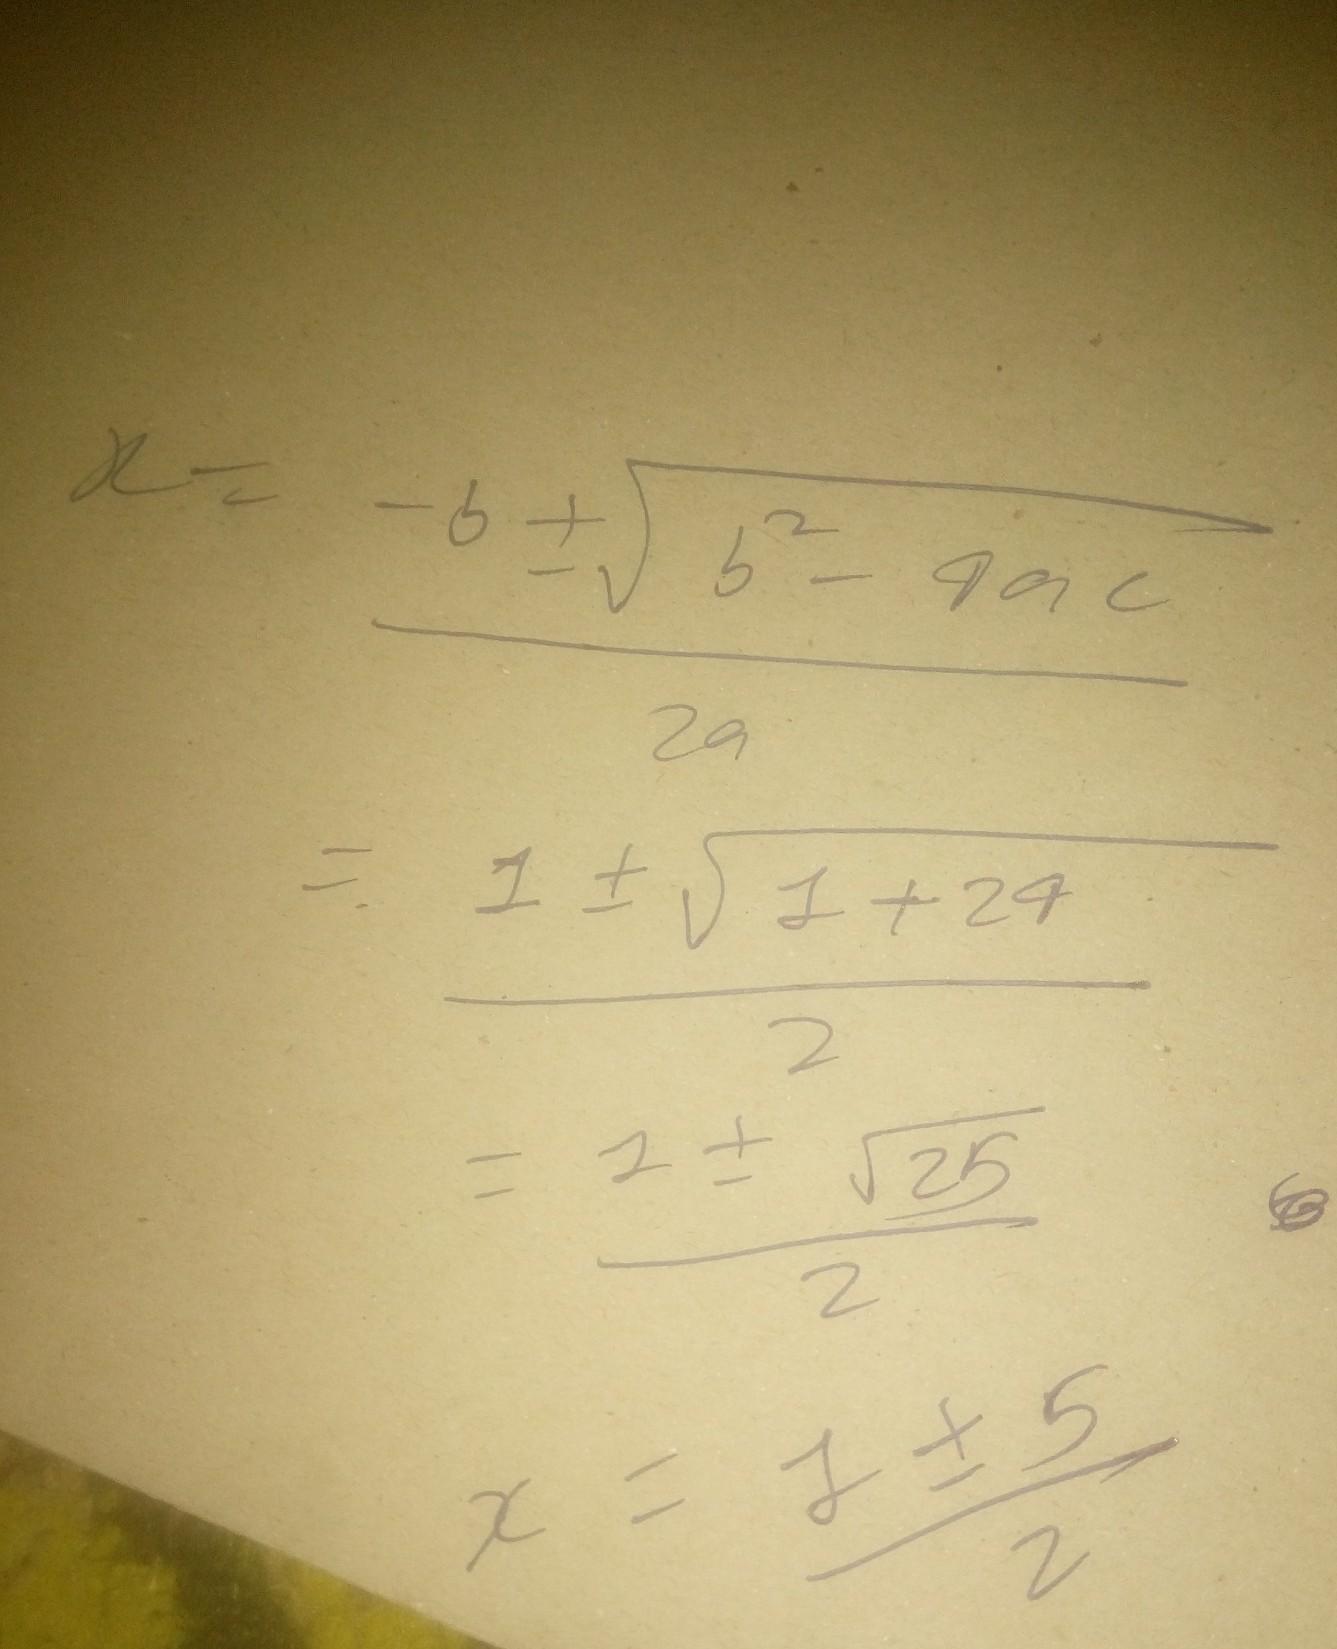 x = -b ± √b² - 4ac
2a
= 1 ± √1 + 24
2
= 1 ± √25
2
x = 1 ± 5
2